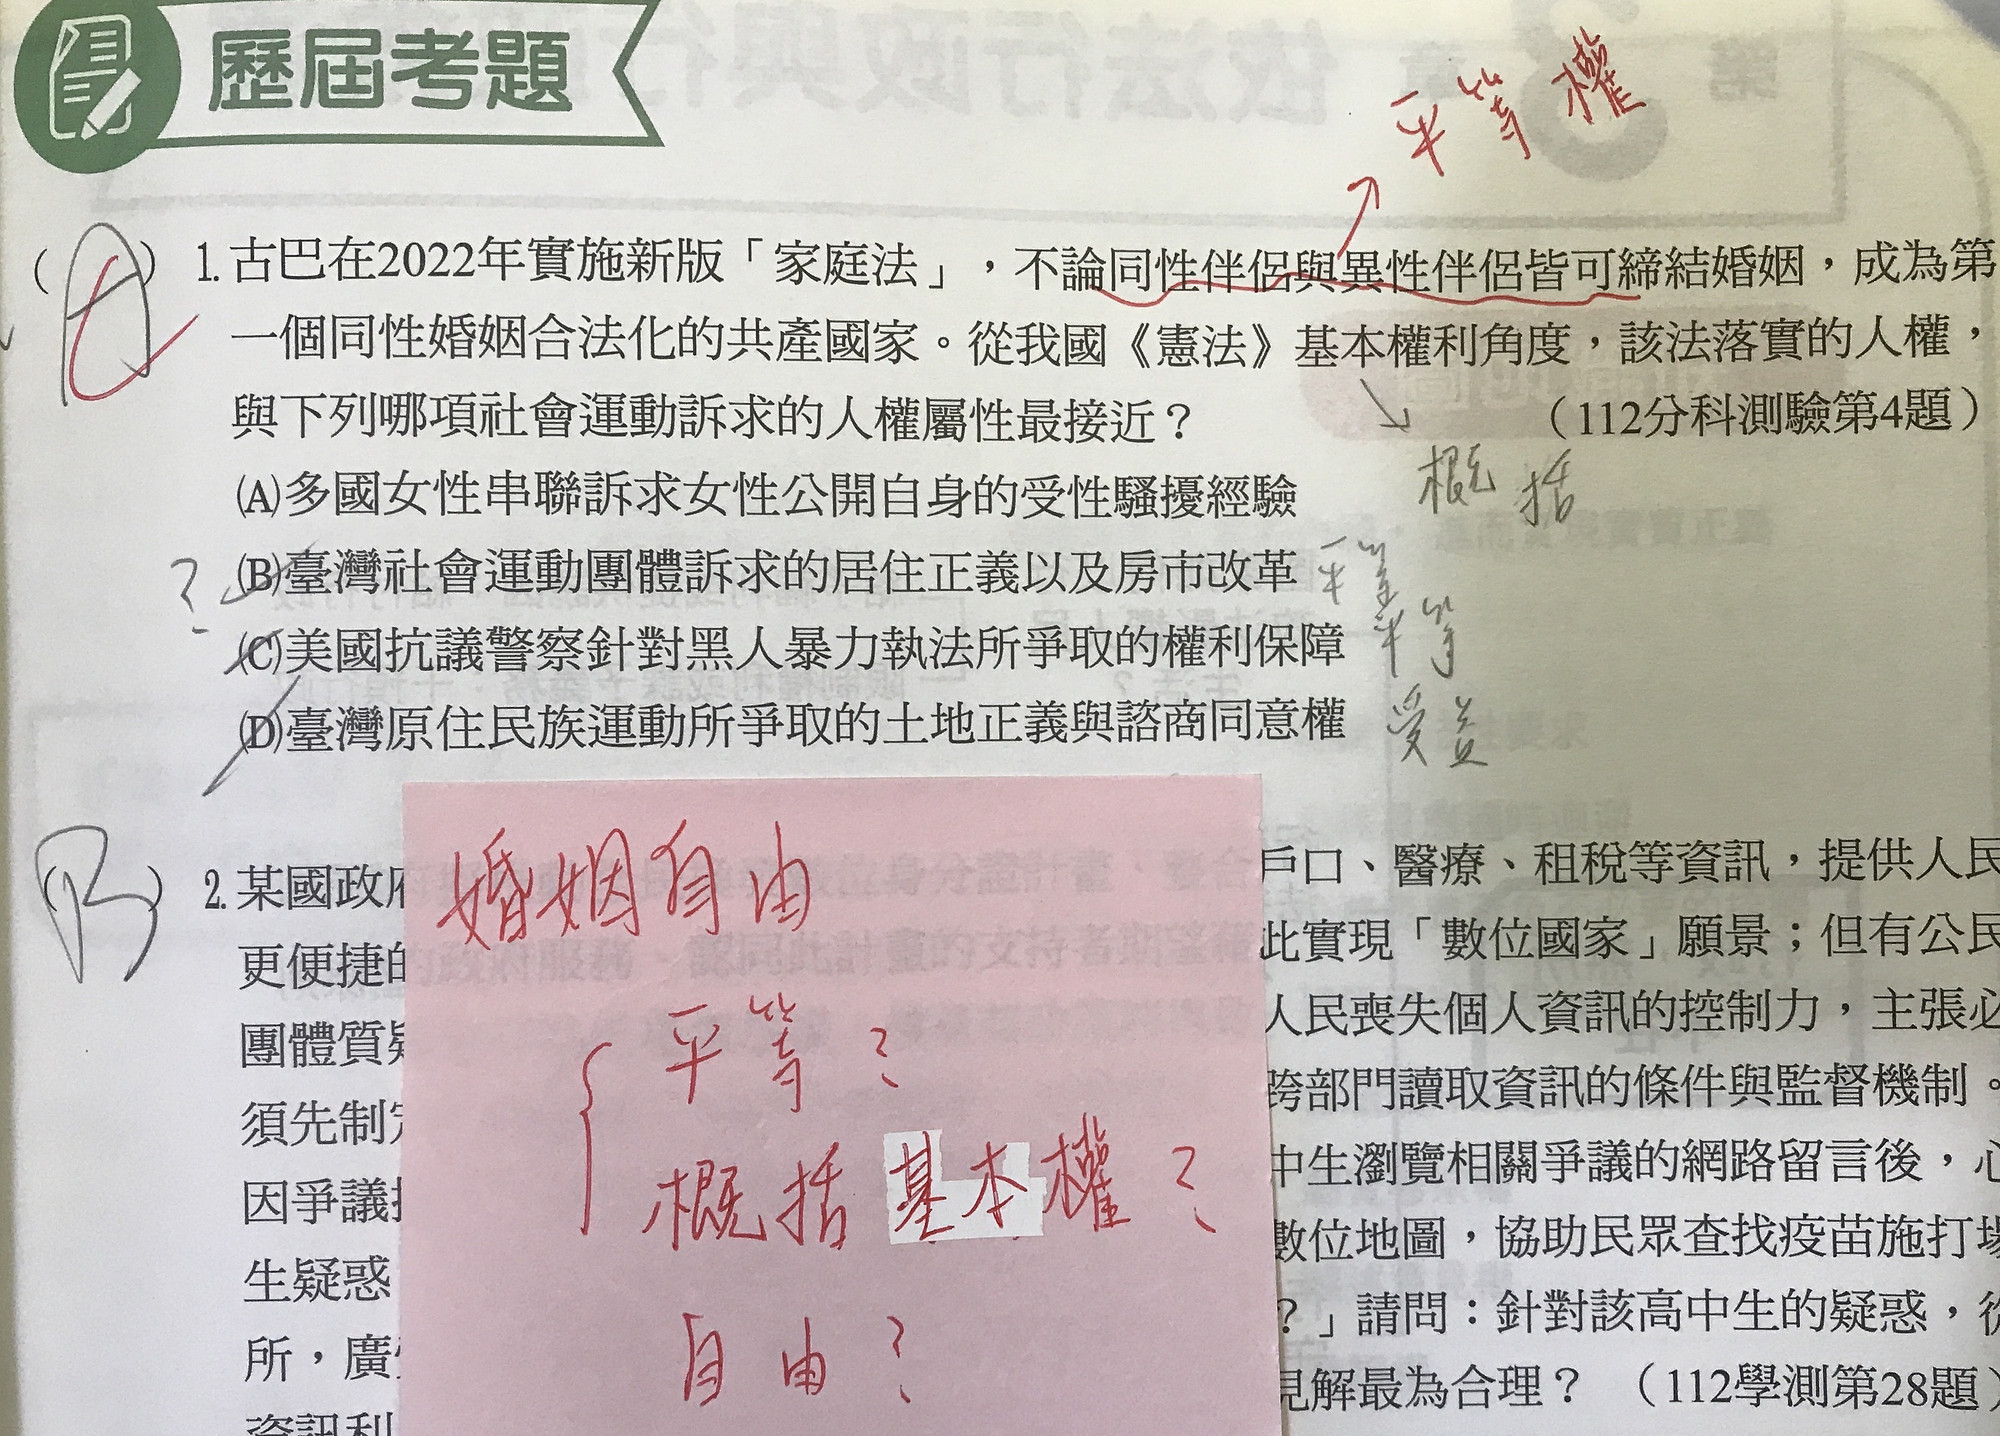 歷屆考題
平等權
(A) C
1. 古巴在2022年實施新版「家庭法」，不論同性伴侶與異性伴侶皆可締結婚姻，成為第
一個同性婚姻合法化的共產國家。從我國《憲法》基本權利角度，該法落實的人權，
與下列哪項社會運動訴求的人權屬性最接近？
（112分科測驗第4題）
概括
(A)多國女性串聯訴求女性公開自身的受性騷擾經驗
?
(B)臺灣社會運動團體訴求的居住正義以及房市改革
平等
(C)美國抗議警察針對黑人暴力執法所爭取的權利保障
平等
(D)臺灣原住民族運動所爭取的土地正義與諮商同意權
受益
(B)
2. 某國政府
戶口、醫療、租稅等資訊，提供人民
更便捷的
此實現「數位國家」願景；但有公民
團體質疑
人民喪失個人資訊的控制力，主張必
須先制定
跨部門讀取資訊的條件與監督機制。
因爭議
中生瀏覽相關爭議的網路留言後，心
生疑惑
數位地圖，協助民眾查找疫苗施打場
所，廣
？」請問：針對該高中生的疑惑，從
資訊利
見解最為合理？（112學測第28題）
婚姻自由
平等？
概括基本權？
自由？